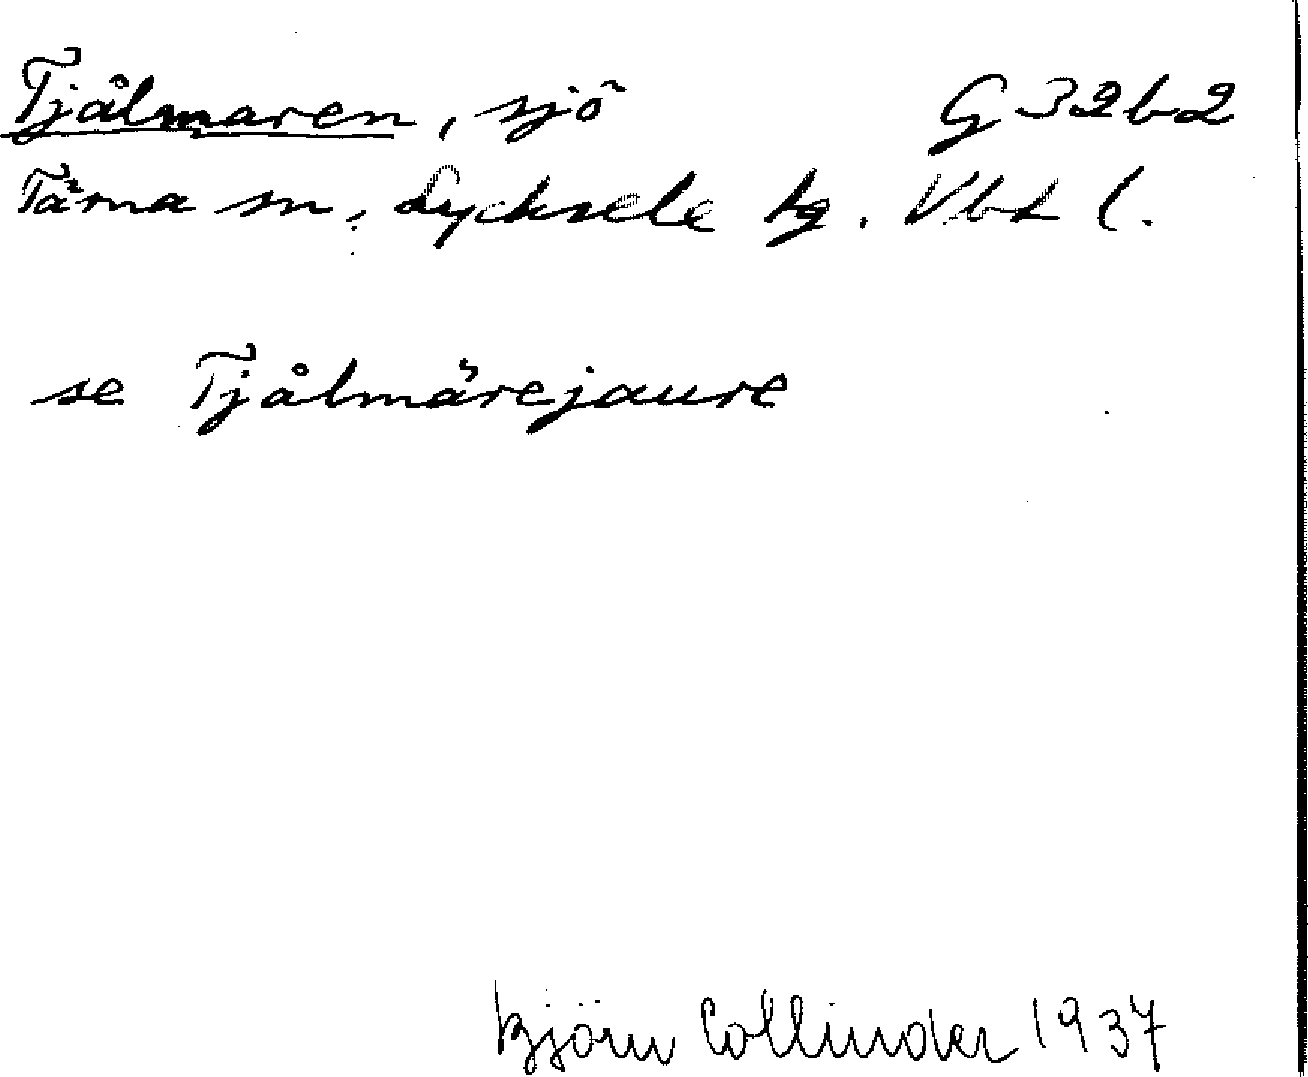 Tjålmaren, sjö G32b2
Tärna sn, Lycksele lg. Vbt l.
se Tjålmärejaure
Björn Collinder 1937